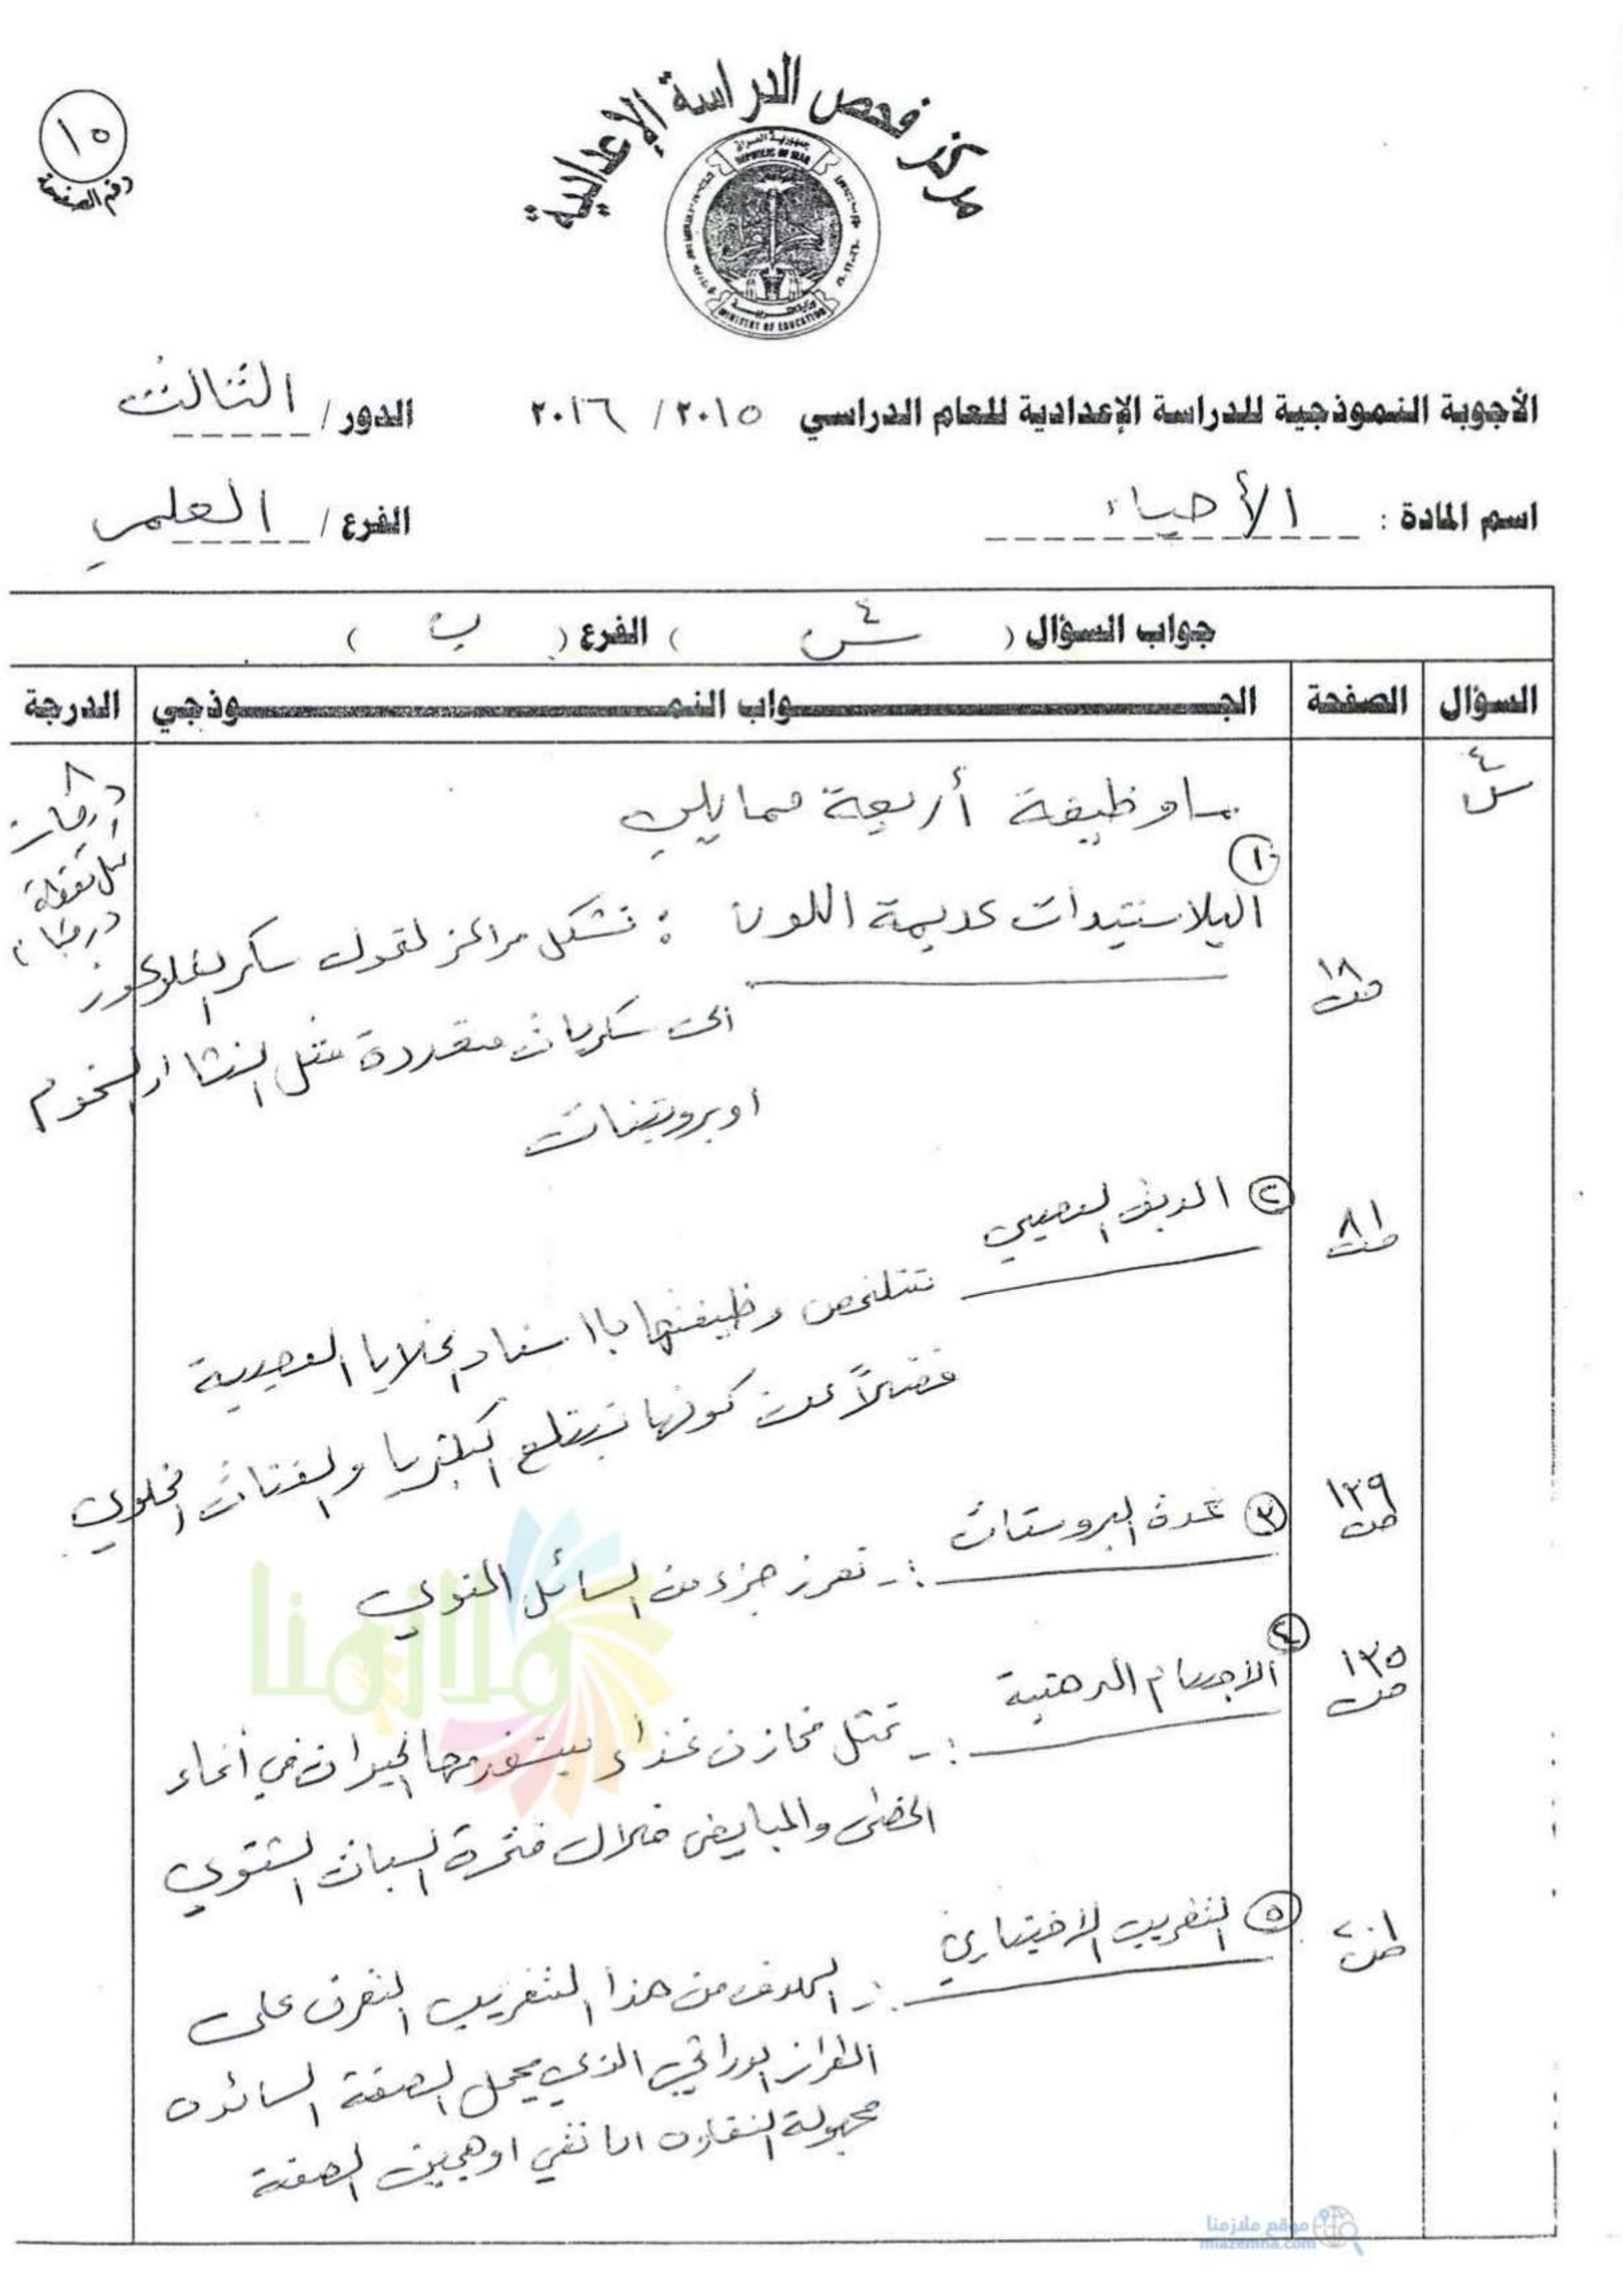 ١٥
رقم الصفحة
مركز فحص الدراسة الإعدادية
جمهورية العراق
REPUBLIC OF IRAQ
وزارة التربية
MINISTRY OF EDUCATION
الأجوبة النموذجية للدراسة الإعدادية للعام الدراسي ٢٠١٥ / ٢٠١٦ الدور / الثالث
اسم المادة : الأحياء الفرع / العلمي
جواب السؤال ( س٤ ) الفرع ( ب )
السؤال الصفحة الجـواب النمـوذجي الدرجة
س٤ ما وظيفة أربعة مما يلي ٨ درجات
لكل نقطة
درجتان
١ البلاستيدات عديمة اللون : تشكل مراكز لتحول سكر الكلوكوز
ص١٨
الى سكريات متعددة مثل النشا او الشحوم
او بروتينات
٢ الدبق العصبي ص٨١
تتلخص وظيفتها باسناد الخلايا العصبية
فضلاً عن كونها تبتلع البكتريا والفتات الخلوي
٣ غدة البروستات :- تفرز جزء من السائل المنوي ص١٣٩
٤ الاجسام الدهنية :- تمثل مخازن غذاء يستخدمها الحيوان في أنماء ص١٣٥
الخصى والمبايض خلال فترة السبات الشتوي
٥ التضريب الاختباري :- الهدف من هذا التضريب التعرف على ص٢٠١
الطراز الوراثي الذي يحمل الصفة السائدة
مجهولة النقاوة اما نقي او هجين الصفة
ملازمنا
موقع ملازمنا
mlazemna.com